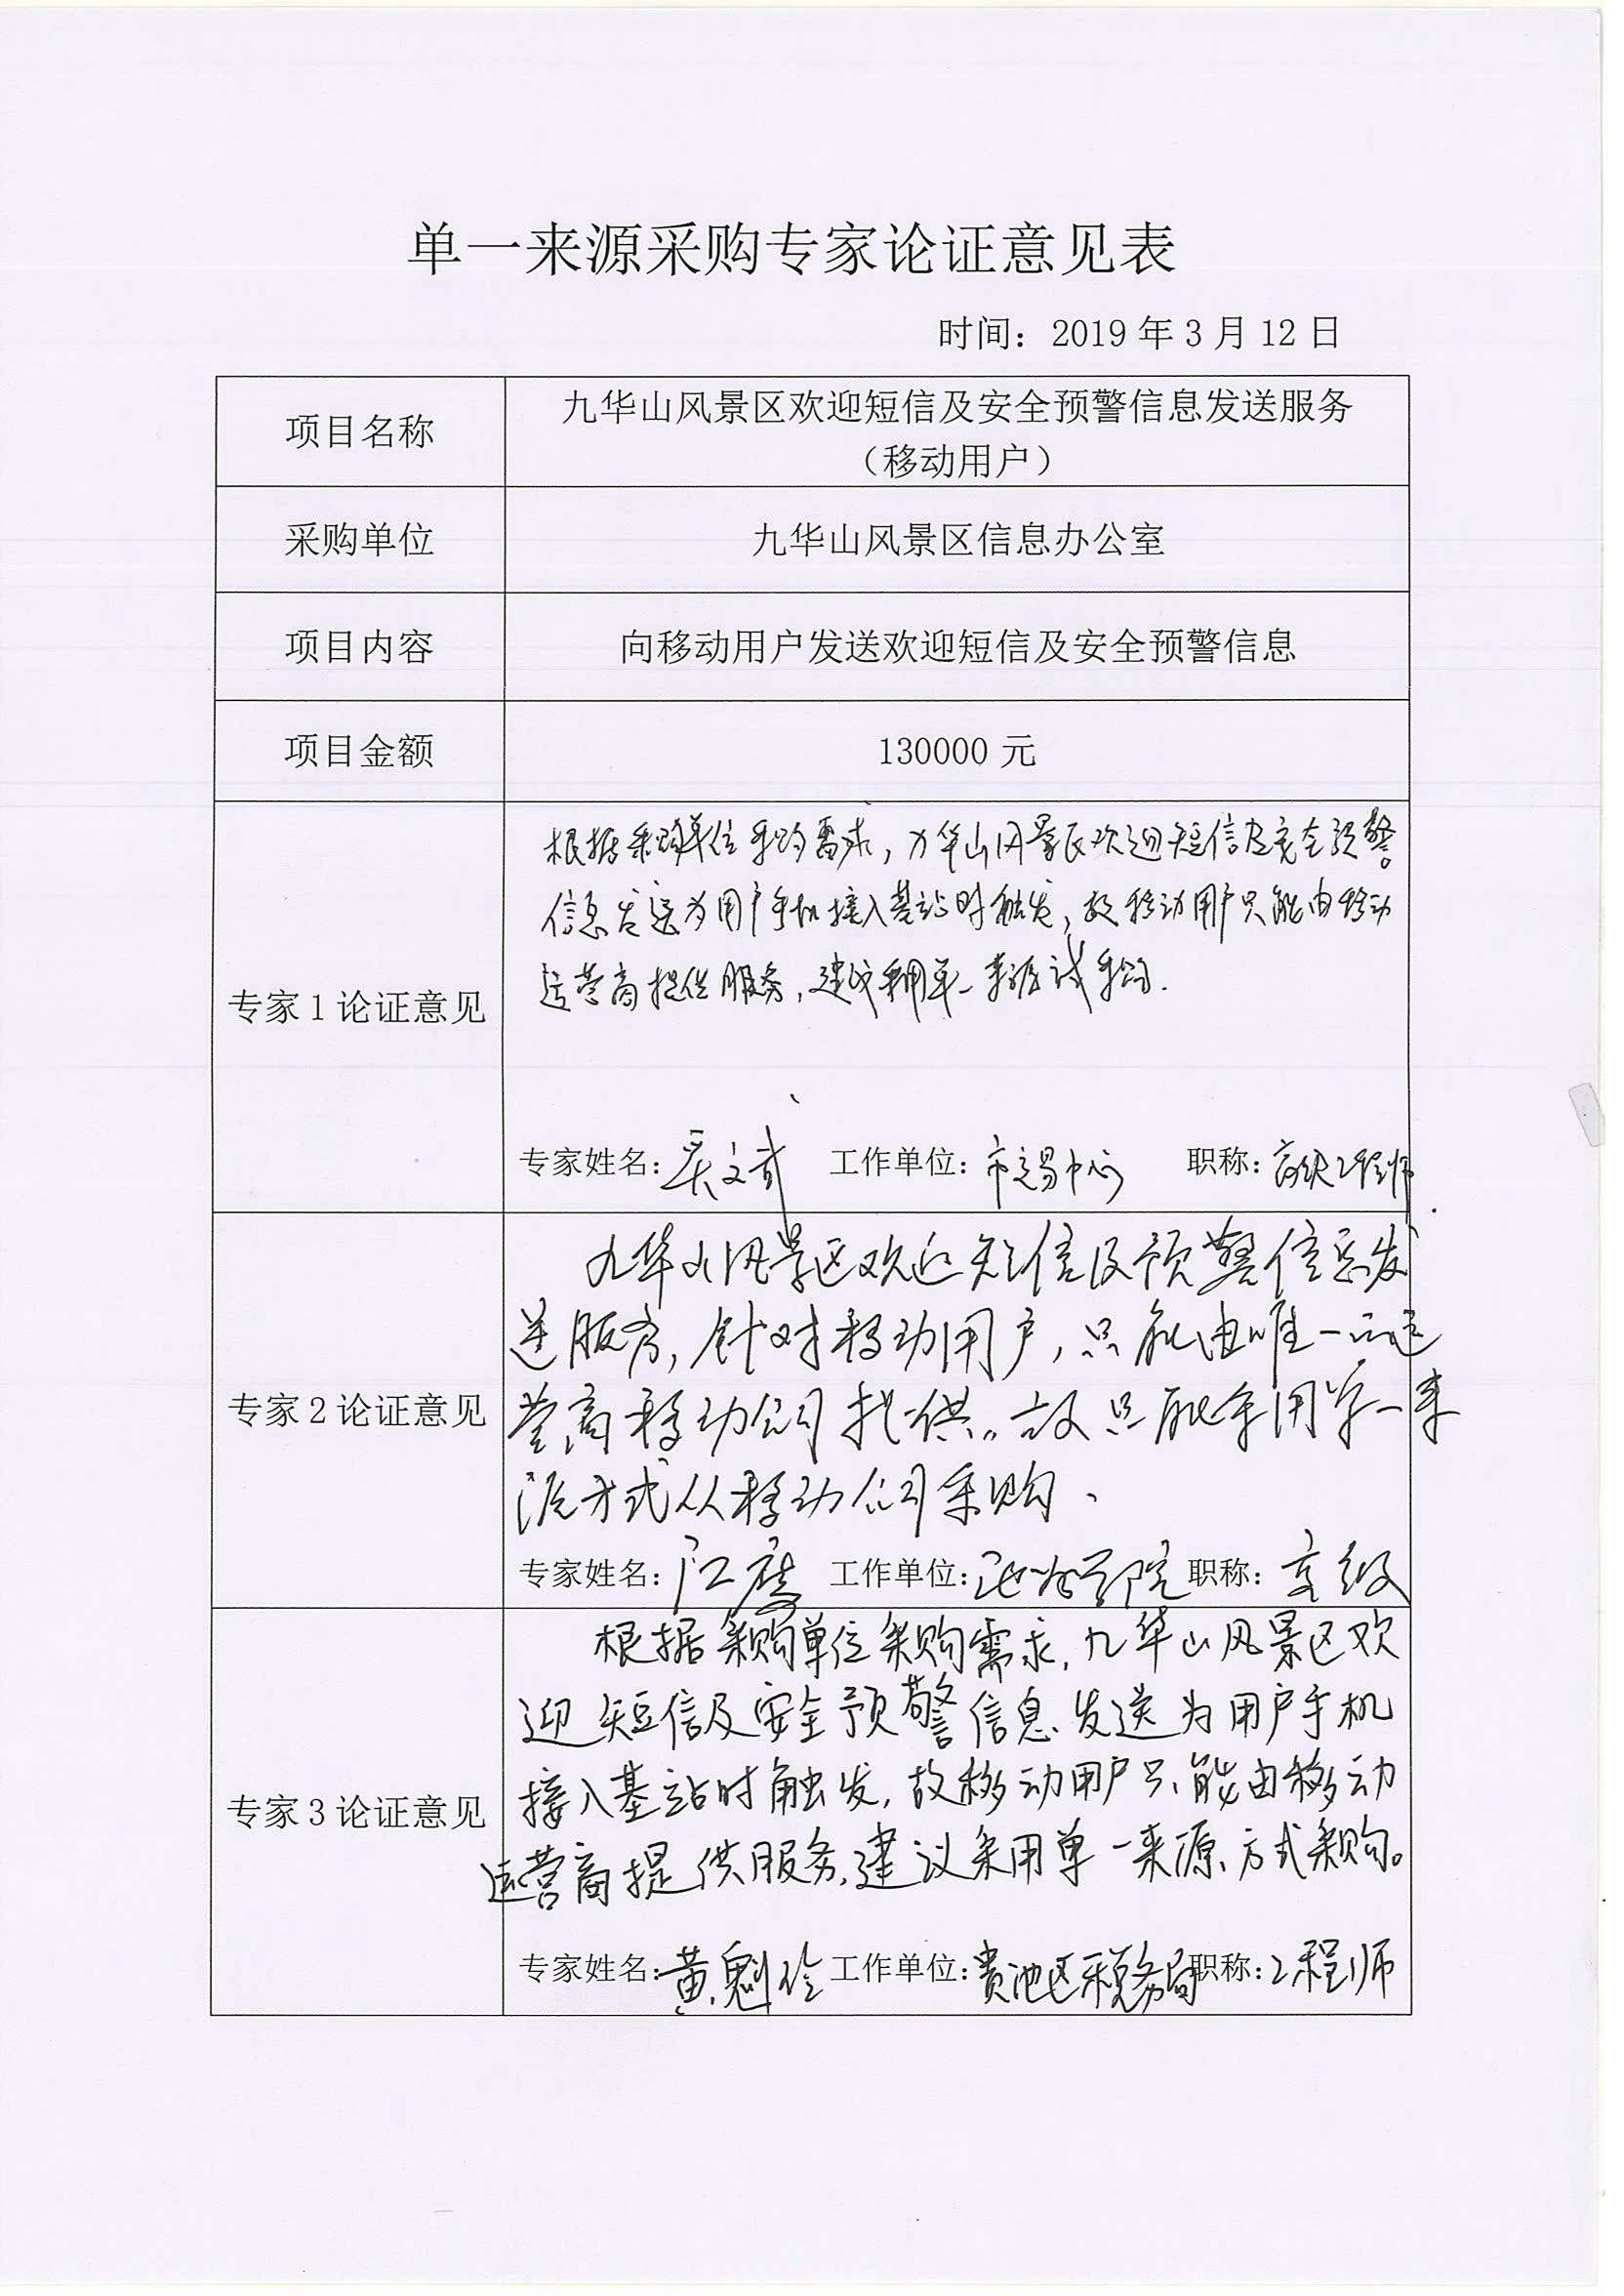 单一来源采购专家论证意见表
时间：2019年3月12日
项目名称
九华山风景区欢迎短信及安全预警信息发送服务
（移动用户）
采购单位
九华山风景区信息办公室
项目内容
向移动用户发送欢迎短信及安全预警信息
项目金额
130000 元
专家1论证意见
根据采购单位采购需求，九华山风景区欢迎短信及安全预警
信息发送为用户手机接入基站时触发，故移动用户只能由移动
运营商提供服务，建议采用单一来源式采购.
专家姓名： 工作单位：市交易中心 职称：高级工程师
专家2论证意见
九华山风景区欢迎短信及预警信息发
送服务，针对移动用户，只能由唯一的运
营商移动公司提供。故只能采用单一来
源方式从移动公司采购、
专家姓名：江 工作单位：池州学院 职称：高级
专家3论证意见
根据采购单位采购需求，九华山风景区欢
迎短信及安全预警信息发送为用户手机
接入基站时触发，故移动用户只能由移动
运营商提供服务，建议采用单一来源方式采购。
专家姓名：黄魁玲 工作单位：贵池区税务局 职称：工程师